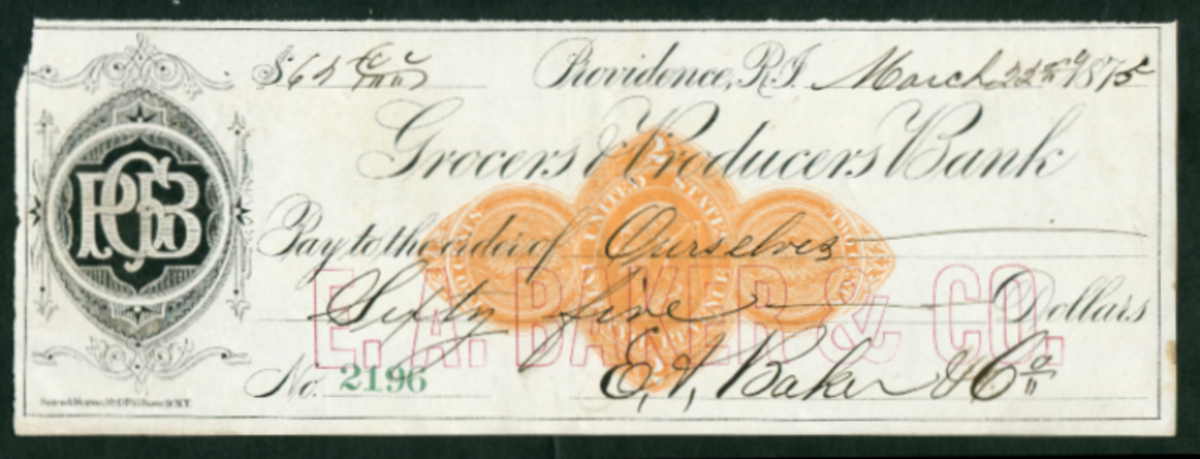 $65 00/100 Providence, R.I. March 22nd 1875
Grocers & Producers Bank
Pay to the order of Ourselves
Sixty five Dollars
E. A. BAKER & CO.
No. 2196 E. A. Baker & Co
PGB
UNITED STATES
TWO CENTS